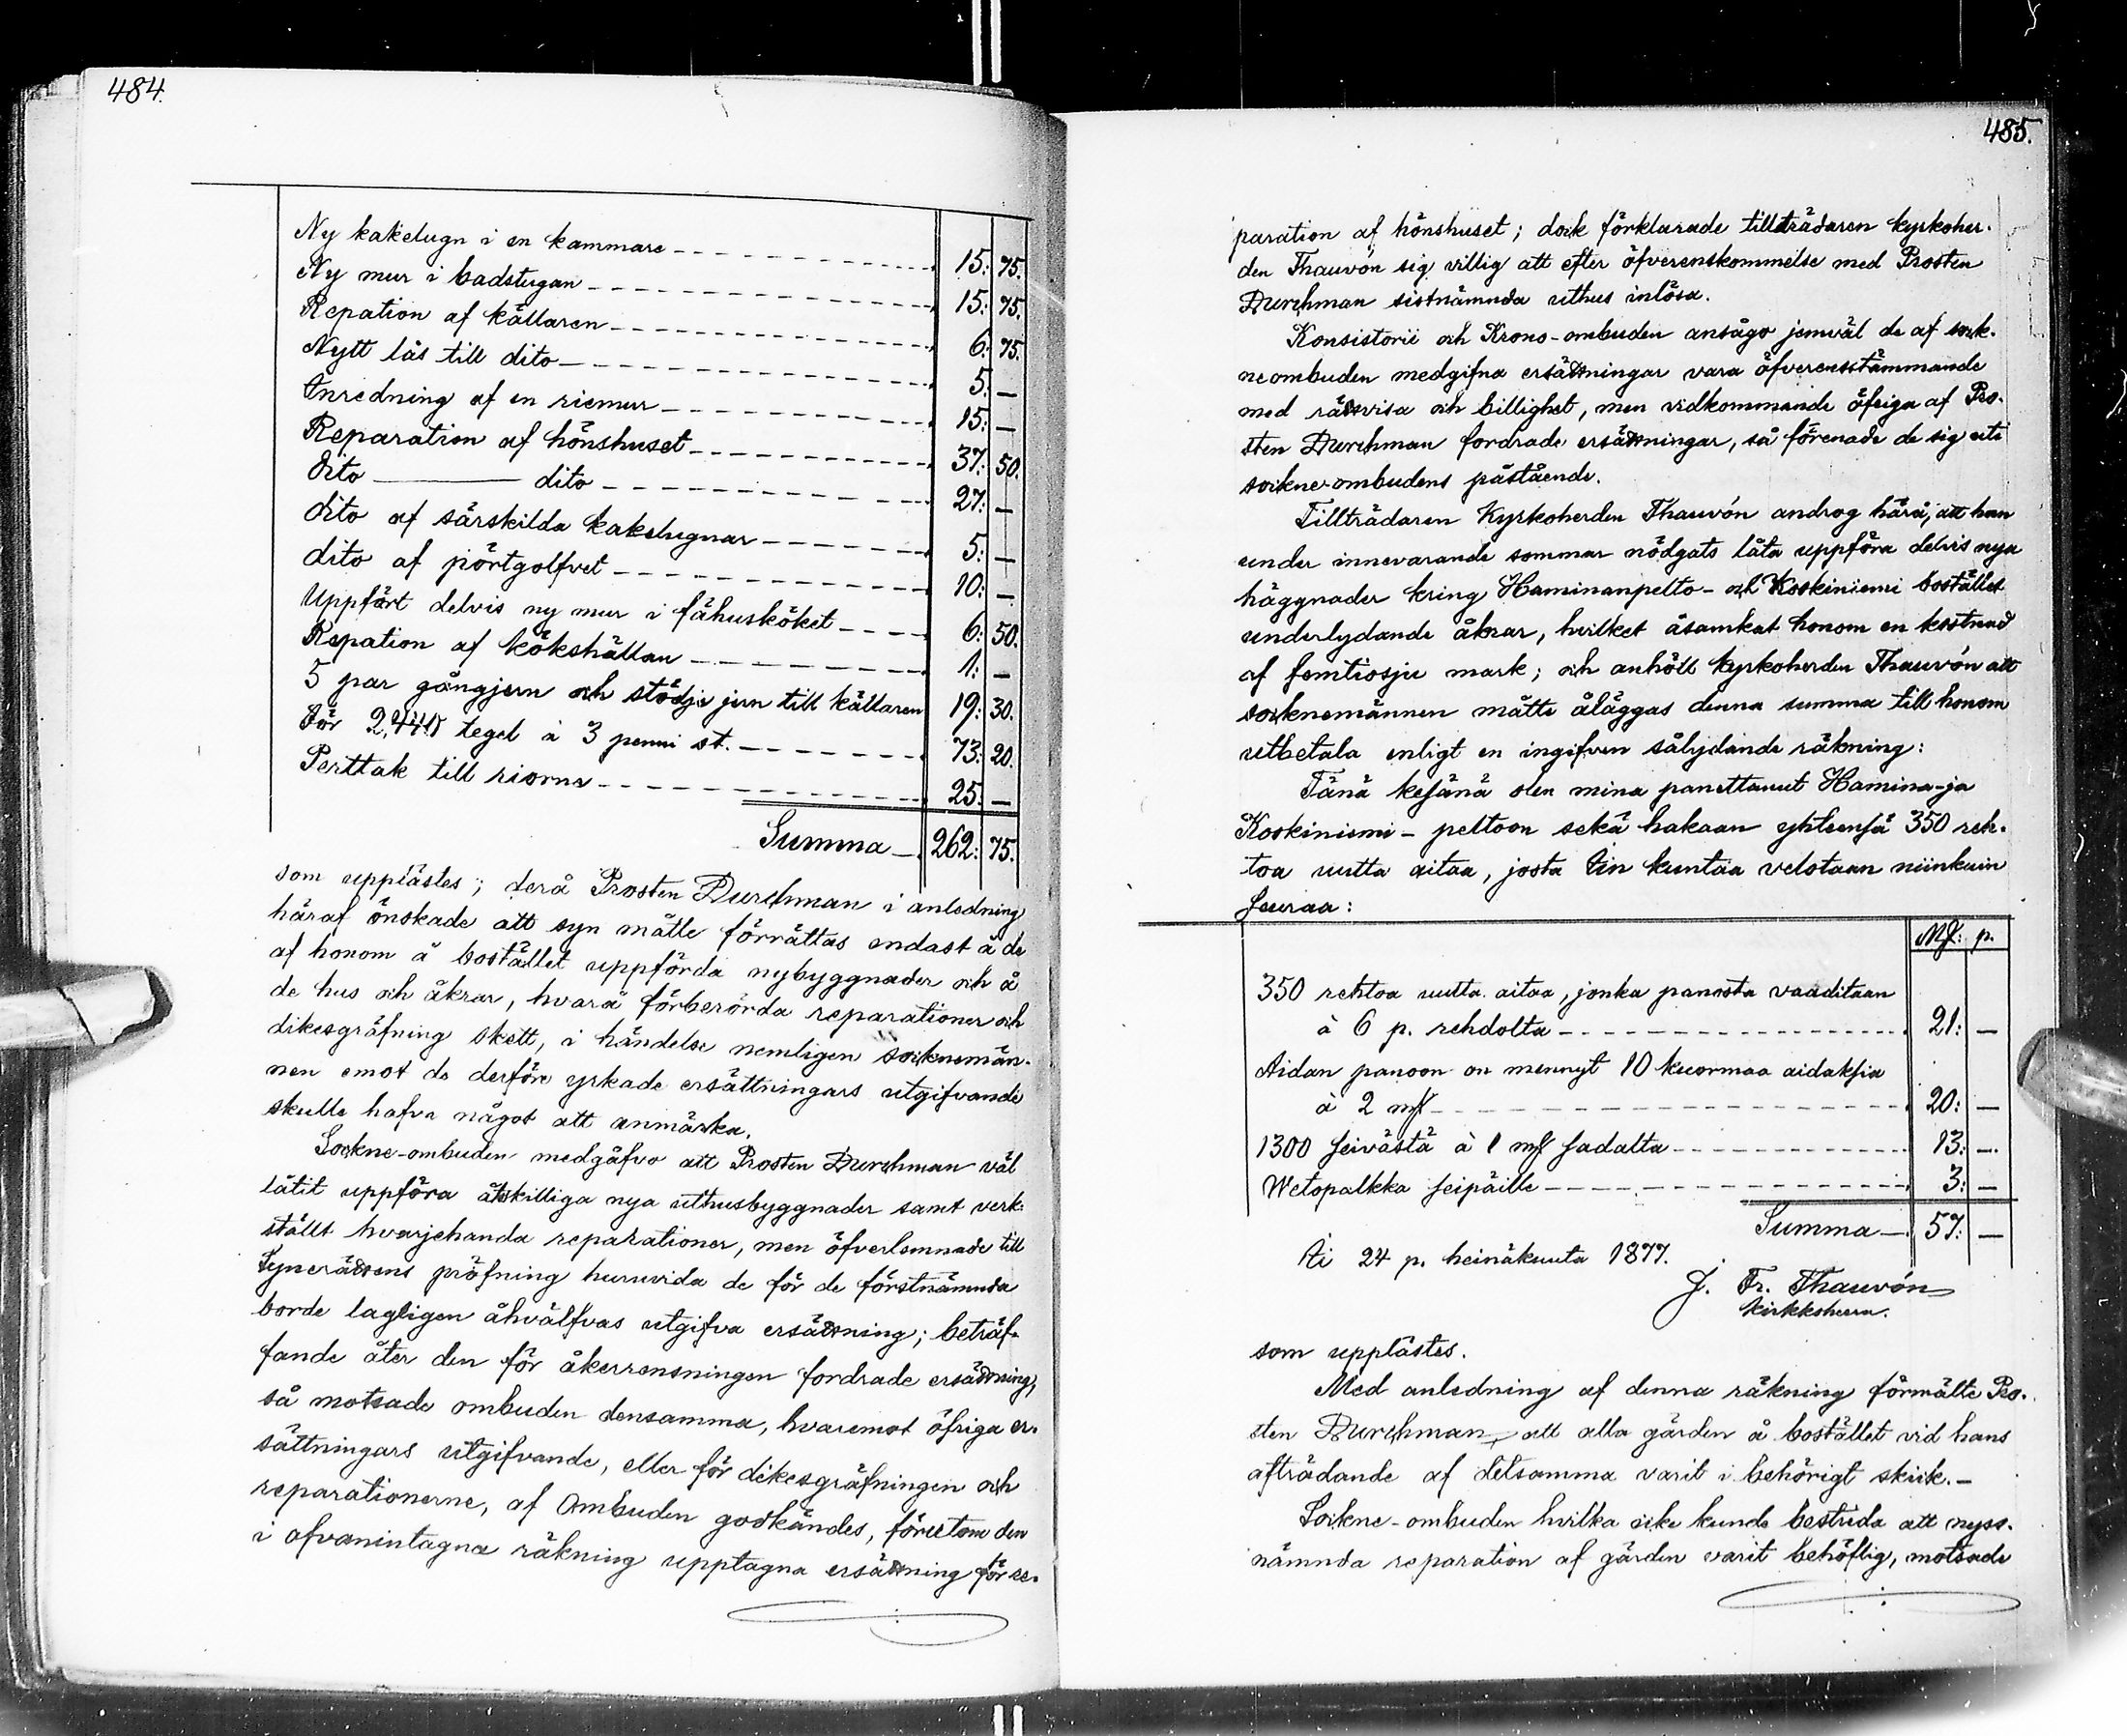 484.
Ny kakelugn i en kammare 15: 75.
Ny mur i badstugan 15: 75.
Repation af källaren 6: 75.
Nytt lås till dito 5: —
Inredning af en riemur 15: —
Reparation af hönshuset 37: 50.
dito dito 27: —
dito af särskilda kakelugnar 5: —
dito af pörtgolfvet 10: —
Uppfört delvis ny mur i fähusköket 6: 50.
Repation af kökshällan 1: —
5 par gångjern och stödje jern till källaren 19: 30.
För 2,440 tegel à 3 penni st. 73: 20.
Perttak till riorna 25: —
Summa 262: 75.
som upplästes; derå Prosten Durchman i anledning
häraf önskade att syn måtte förrättas endast å de
af honom å bostället uppförda nybyggnader och å
de hus och åkrar, hvarå förberörda reparationer och
dikesgräfning skett, i händelse nemligen socknemän-
nen emot de derföre yrkade ersättningars utgifvande
skulle hafva något att anmärka.
Sockne-ombuden medgåfvo att Prosten Durchman väl
låtit uppföra åtskilliga nya uthusbyggnader samt verk-
ställt hvarjehanda reparationer, men öfverlemnade till
Synerättens pröfning huruvida de för de förstnämnda
borde lagligen åhvälfvas utgifva ersättning; beträf-
fande åter den för åkerrensningen fordrade ersättning,
så motsade ombuden densamma, hvaremot öfriga er-
sättningars utgifvande, eller för dikesgräfningen och
reparationerne, af Ombuden godkändes, förutom den
i ofvanintagna räkning upptagna ersättning för re-
485.
paration af hönshuset; dock förklarade tillträdaren kyrkoher-
den Thauvón sig villig att efter öfverenskommelse med Prosten
Durchman sistnämnda uthus inlösa.
Konsistorii och Krono-ombuden ansågo jemväl de af sock-
neombuden medgifna ersättningar vara öfverensstämmande
med rättvisa och billighet, men vidkommande öfriga af Pro-
sten Durchman fordrade ersättningar, så förenade de sig uti
sockne-ombudens påstående.
Tillträdaren Kyrkoherden Thauvón androg härå, att han
under innevarande sommar nödgats låta uppföra delvis nya
häggnader kring Haminanpelto- och Koskiniemi bostället
underlydande åkrar, hvilket åsamkat honom en kostnad
af femtiosju mark; och anhöll kyrkoherden Thauvón att
socknemännen måtte åläggas denna summa till honom
utbetala enligt en ingifven sålydande räkning:
Tänä kesänä olen mina panettanut Hamina-ja
Koskiniemi-peltoon sekä hakaan yhteensä 350 reh-
toa uutta aitaa, josta Iin kuntaa velotaan niinkuin
seuraa:
Mf: p.
350 rehtoa uutta aitaa, jonka panosta vaaditaan
à 6 p. rehdolta 21: —
Aidan panoon on mennyt 10 kuormaa aidaksia
à 2 mf 20: —
1300 seivästä à 1 mf sadalta 13: —
Wetopalkka seipäille 3: —
Summa 57: —
Ii 24 p. heinäkuuta 1877.
J. Fr. Thauvón
Kirkkoherra.
som upplästes.
Med anledning af denna räkning förmälte Pro-
sten Durchman, att alla gärden å bostället vid hans
afträdande af detsamma varit i behörigt skick.—
Sockne-ombuden hvilka icke kunde bestrida att nyss-
nämnda reparation af gärden varit behöflig, motsade